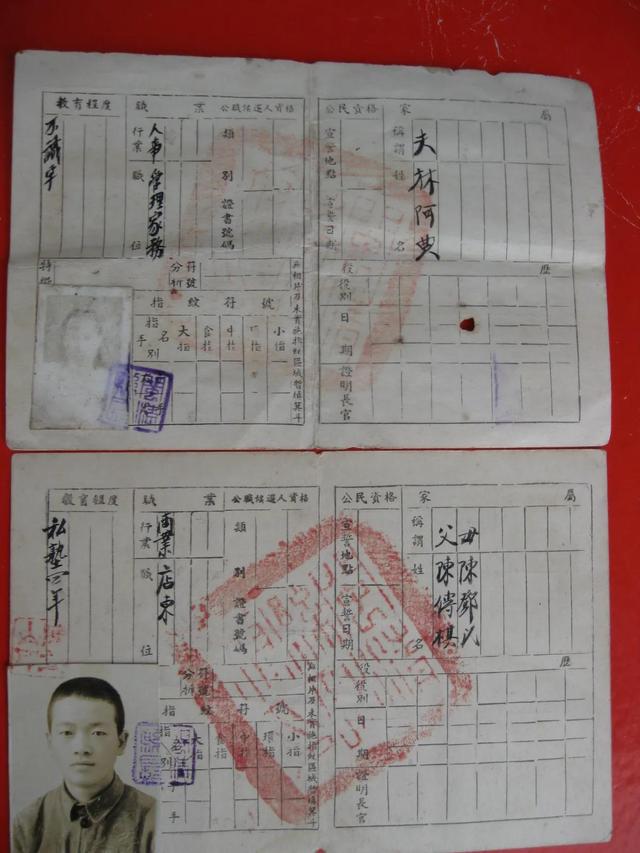 家屬
稱謂 姓名
夫 林阿典
公民資格
宣誓地點
宣誓日期
役歷
役別
日期
證明長官
公職候選人資格
類別
證書號碼
職業
行業
職位
人事
管理家務
教育程度
不識字
符號分析
指紋符號
指名
手別
大指
食指
中指
小指
無相片及未實施指紋區域暫填箕斗
家屬
稱謂 姓名
母 陳鄧氏
父 陳傳棋
公民資格
宣誓地點
宣誓日期
役歷
役別
日期
證明長官
公職候選人資格
類別
證書號碼
職業
行業
職位
商業
店東
教育程度
私塾三年
符號分析
指紋符號
大指
食指
中指
環指
小指
無相片及未實施指紋區域暫填箕斗